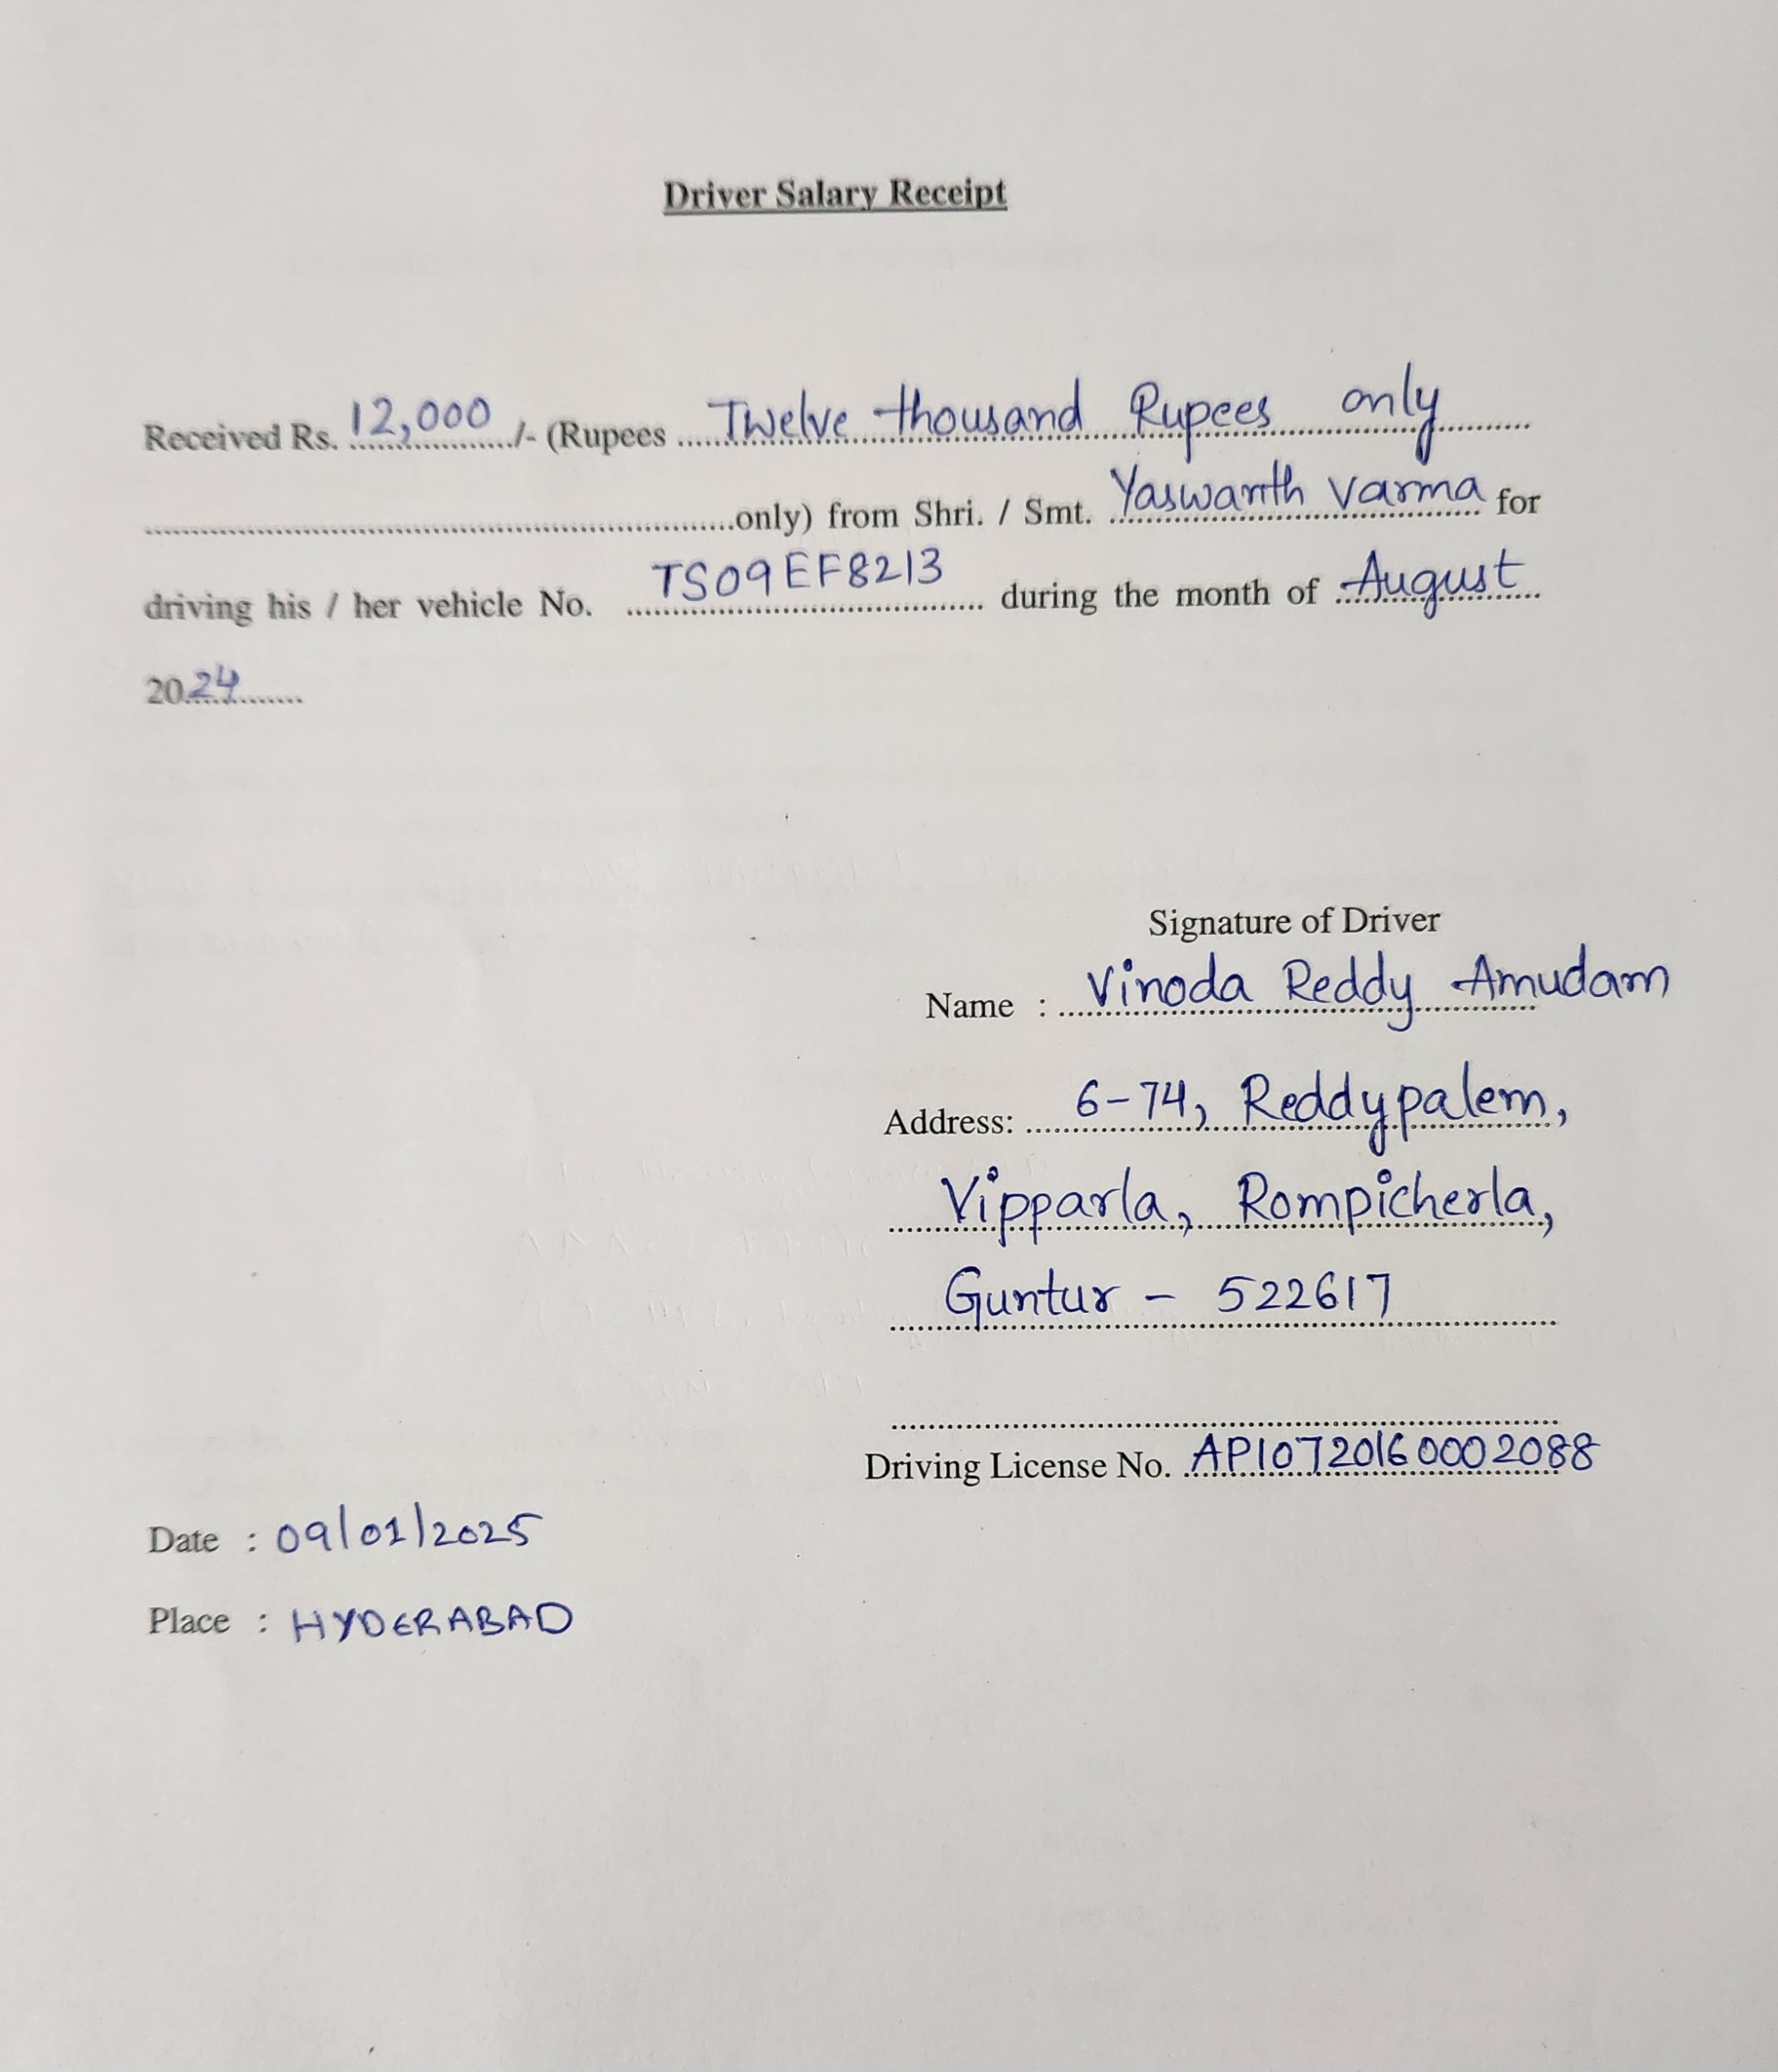 Driver Salary Receipt
Received Rs. 12,000 /- (Rupees Twelve thousand Rupees only
only) from Shri. / Smt. Yaswanth varma for
driving his / her vehicle No. TS09EF8213 during the month of August
2024
Signature of Driver
Name : Vinoda Reddy Amudam
Address: 6-74, Reddypalem,
Vipparla, Rompicherla,
Guntur - 522617
Driving License No. AP10720160002088
Date : 09/01/2025
Place : HYDERABAD